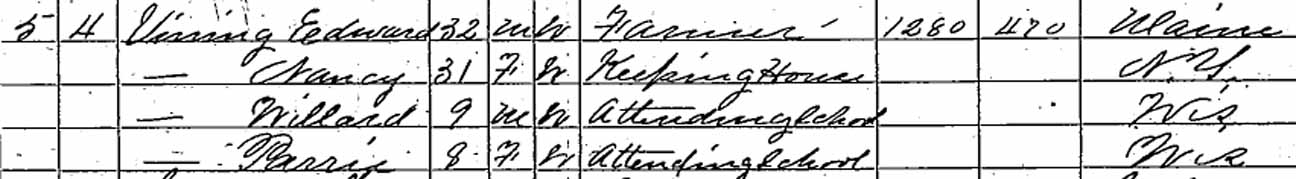 5 4 Vining Edward 32 M W Farmer 1280 470 Maine
— Nancy 31 F W Keeping House N.Y.
— Willard 9 M W Attending School Wis
— 8 F W Attending School Wis